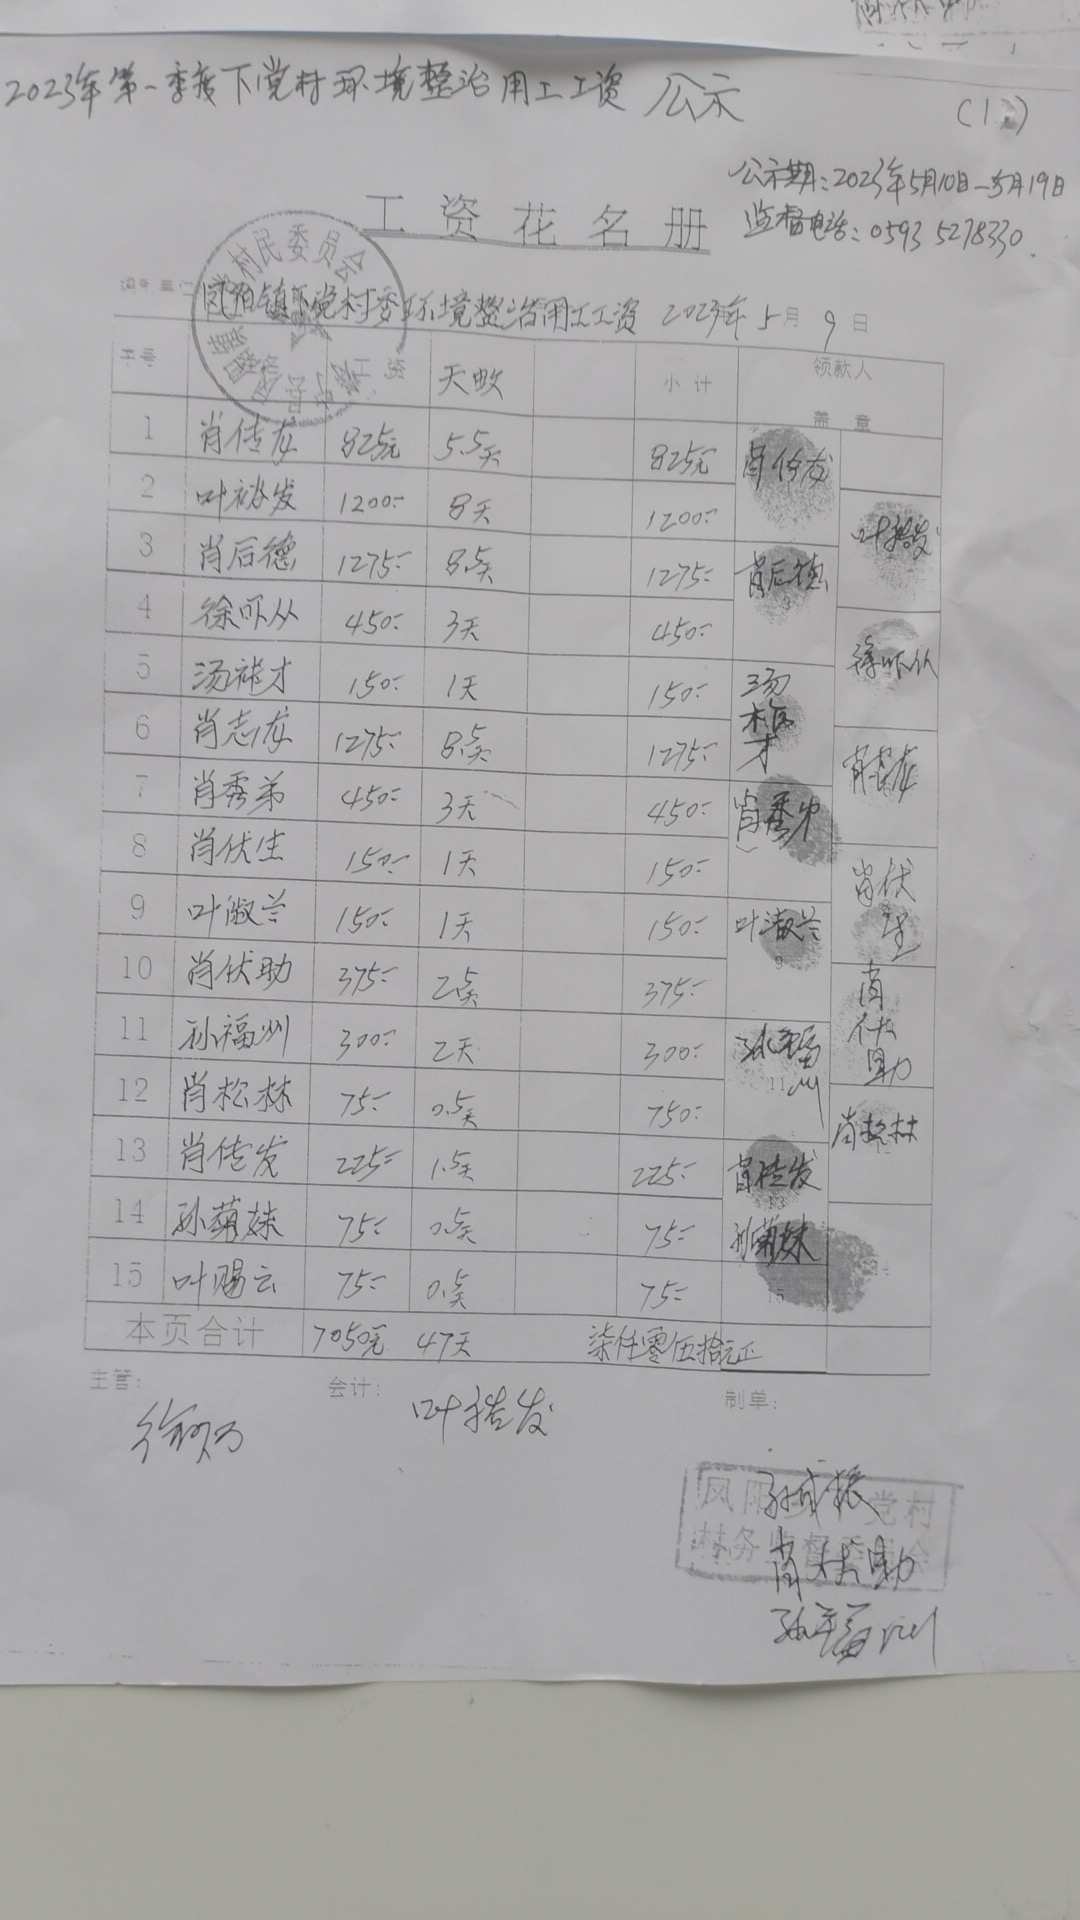 2023年第一季度下党村环境整治用工工资 公示
(1)
公示期:2023年5月10日—5月19日
监督电话:0593 5278330.
工资花名册
村民委员会
凤阳镇下党村委环境整治用工工资 2023年5月9日
序号 工资 天数 小计 领款人
盖章
1 肖传龙 825元 5.5天 825元 肖传龙
2 叶裕发 1200- 8天 1200-
3 肖后德 1275- 8.5天 1275- 肖后德
4 徐吓从 450- 3天 450- 徐吓从
5 汤 才 150- 1天 150- 汤 才
6 肖志龙 1275- 8.5天 1275- 肖志龙
7 肖秀弟 450- 3天 450- 肖秀弟
8 肖伏生 150- 1天 150- 肖伏
9 叶淑兰 150- 1天 150- 叶淑兰
10 肖伏助 375- 2.5天 375- 肖伏助
11 孙福州 300- 2天 300- 孙福州
12 肖松林 75- 0.5天 750- 肖松林
13 肖传发 225- 1.5天 225- 肖传发
14 孙菊妹 75- 0.5天 75- 孙菊妹
15 叶赐云 75- 0.5天 75-
本页合计 7050元 47天 柒仟零伍拾元正
主管: 会计: 制单:
凤阳 党村
村务监督委员会
孙成振
肖伏助
孙福州